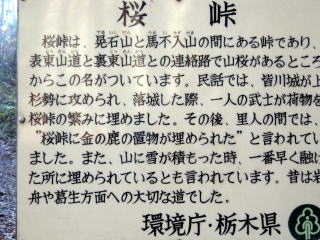 桜 峠
桜峠は、晃石山と馬不入山の間にある峠であり、
表東山道と裏東山道との連絡路で山桜があるところ
からこの名がついています。民話では、皆川城が上
杉勢に攻められ、落城した際、一人の武士が荷物を
桜峠の繁みに埋めました。その後、里人の間では、
"桜峠に金の鹿の置物が埋められた"と言われてい
ました。また、山に雪が積もった時、一番早く融け
た所に埋められているとも言われています。昔は岩
舟や葛生方面への大切な道でした。
環境庁・栃木県